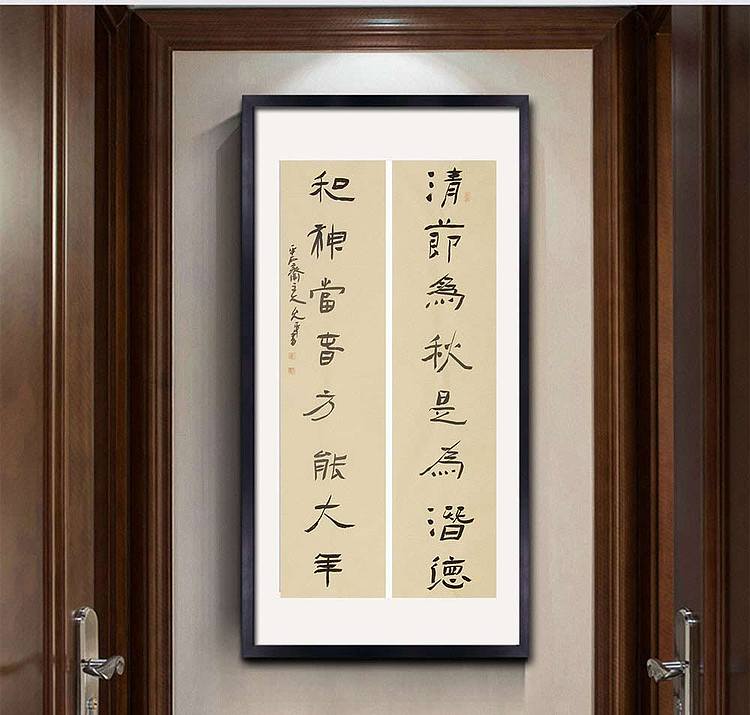 清節為秋是為潛德
和神當春方能大年
齋主人